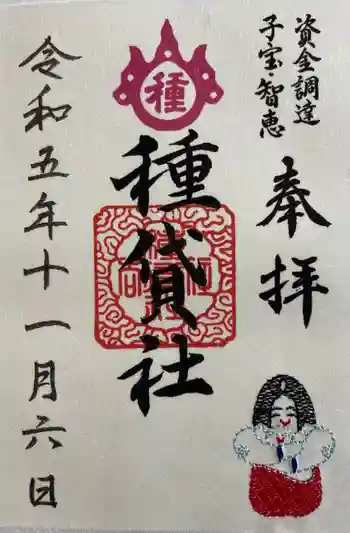 資金調達
子宝・智恵
奉拝
種
種貸社
令和五年十一月六日